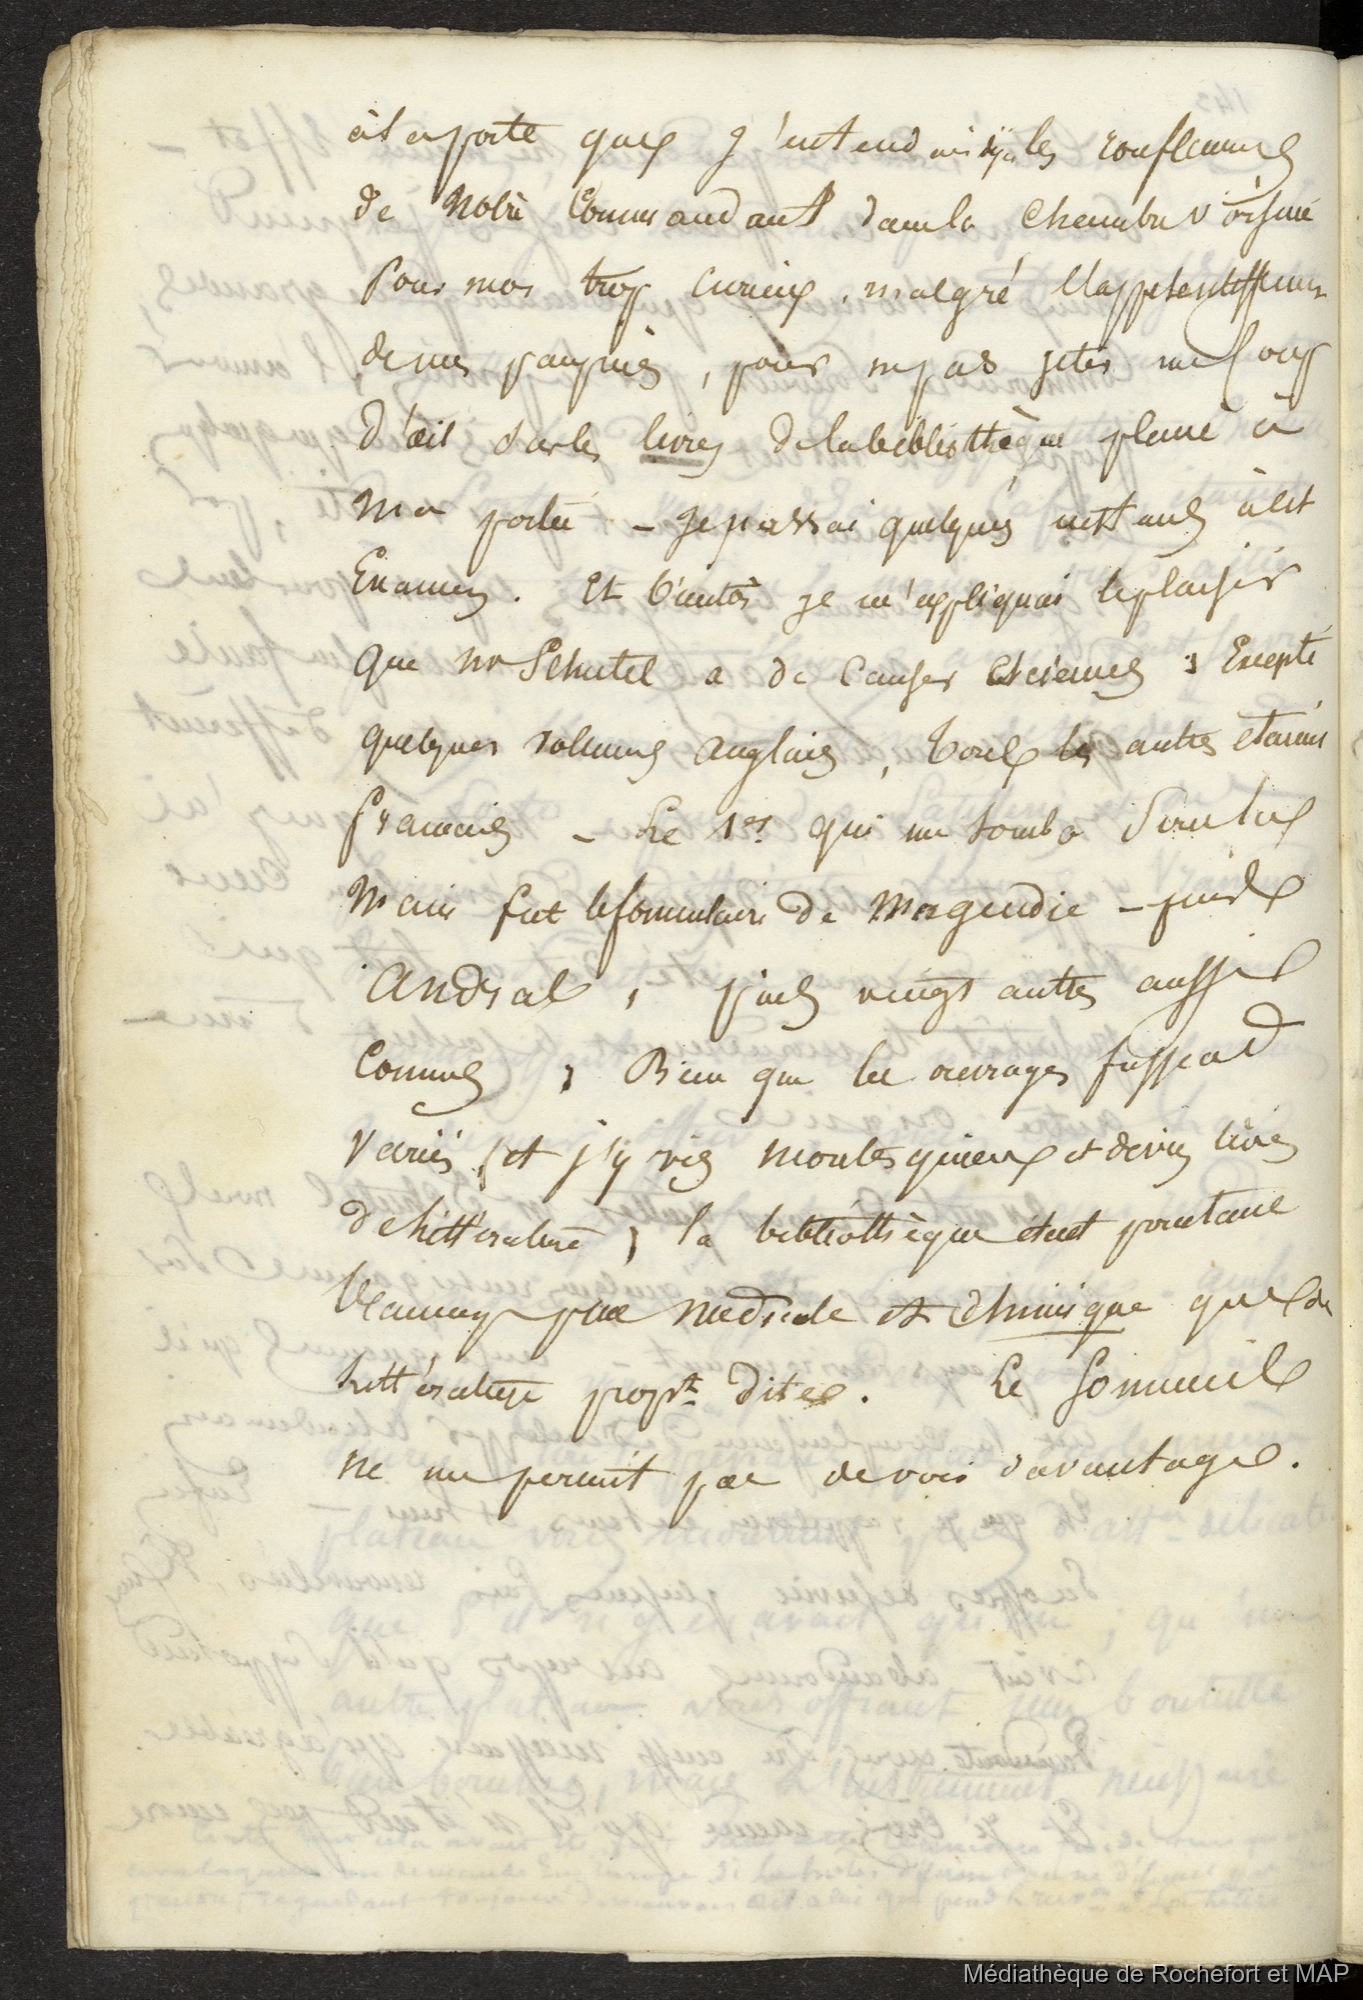 à la porte que j'entendais déjà les ronflemens
de Notre Commandant dans la chambre voisine
Pour moi trop curieux, malgré l'appesantissement
de mes paupières, pour ne pas jeter un Coup
d'œil sur les livres de la bibliothèque placée à
Ma portée – Je passai quelques instans à cet
Examen. Et bientôt je m'expliquai le plaisir
Que Mr Schutel a de causer sciences ; Excepté
quelques volumes anglais, tous les autres étaient
français – Le 1er qui me tomba sous les
Mains fut le formulaire de Magendie – puis
Andral, puis vingt autres aussi
Connus ; Bien que les ouvrages fussent
Variés, et j'y vis Montesquieu et divers livres
de littérature ; la bibliothèque était pourtant
beaucoup plus médicale et chimique que de
littérature propt dite. Le sommeil
ne me permit pas de voir davantage.
Médiathèque de Rochefort et MAP